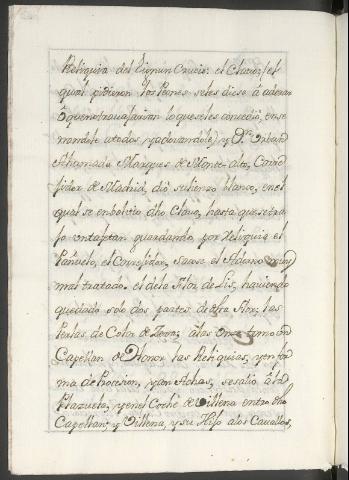 Reliquia del Lignun Crucis: el Clavo; el
qual pidieron los Peones seles diese â adorar
ô que no travajarian lo que seles concedió, ense
nandole atados y adorandole; y Dn.
Ahumada Marques de Monte-alto, Corre
gidor de Madrid, dió su lienzo blanco, en el
qual se enbolvio dho Clavo, hasta que se tra
jo un tafetan guardando por Reliquia el
Pañuelo, el Corregidor, sacose el Adorno muy
mal tratado, el dela Flor de Lis, haviendo
quedado solo dos partes de dha Flor; las
Perlas de Color de ; alas once tomo un
Capellan de Honor las Reliquias, y en for
ma de Procesion, y con Achas, se salio â la
Plazuela, y en el Coche de Villena entro dho
Capellan, y Villena, y su Hijo alos Cavallos,